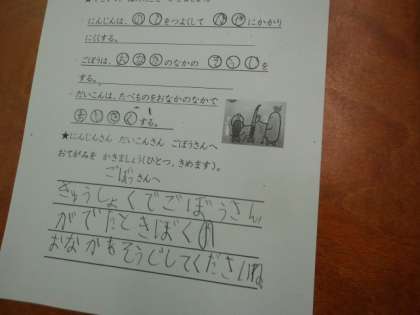 にんじんは、のどをつよくして かぜにかかり
にくくする。
ごぼうは、おなかのなかの そうじを
する。
だいこんは、たべものをおなかのなかで
する。
★にんじんさん だいこんさん ごぼうさんへ
おてがみを かきましょう(ひとつ、きめます)。
ごぼうさんへ
きゅうしょくでごぼうさん
がでたときぼくの
おなかもそうじしてくださいね